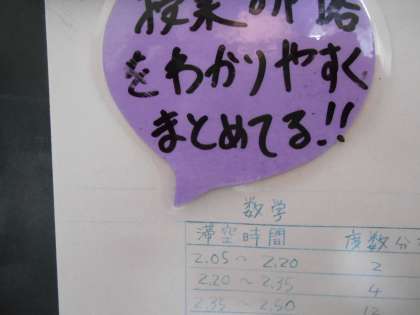 授業の内容
をわかりやすく
まとめてる!!
数学
滞空時間 度数分
2.05～ 2.20 2
2.20 ～ 2.35 4
2.35 ～ 2.50